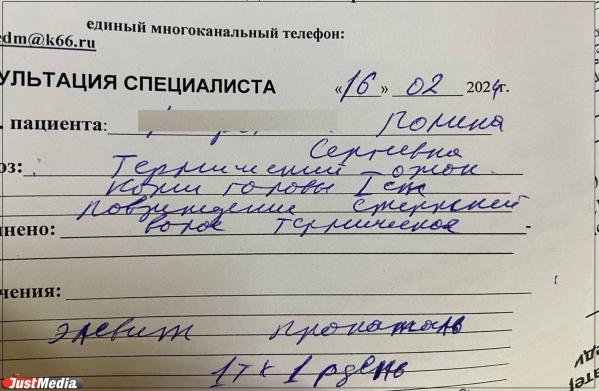 единый многоканальный телефон:
edm@k66.ru
УЛЬТАЦИЯ СПЕЦИАЛИСТА «16» 02 2024г.
. пациента: Полина
Сергеевна
оз: Термический ожог
кожи головы I ст
Повреждение стержней
нено: волос термическое
чения:
элевит пронаталь
1тк 1 р день
JustMedia